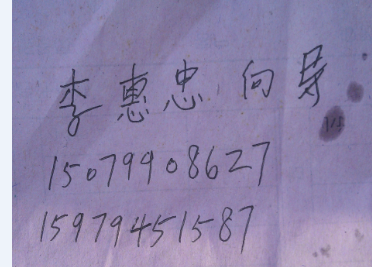 李惠忠 向导
15079908627
15979451587